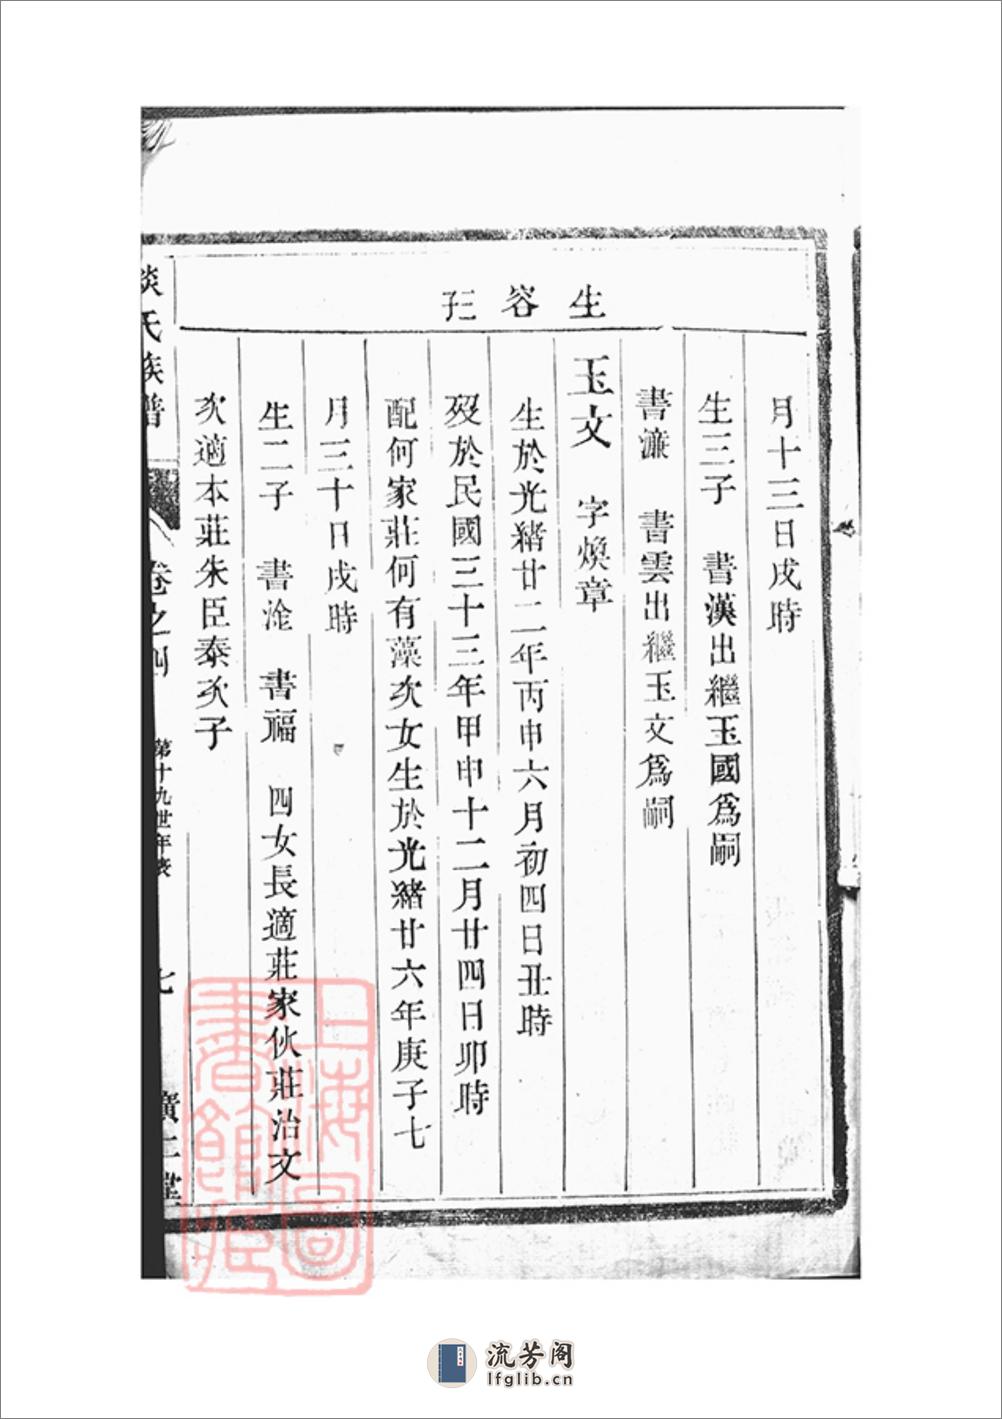 生容孖
月十三日戌時
生三子 書漢出繼玉國爲嗣
書濂 書雲出繼玉文爲嗣
玉文 字煥章
生於光緒廿二年丙申六月初四日丑時
歿於民國三十三年甲申十二月廿四日卯時
配何家莊何有藻次女生於光緒廿六年庚子七
月三十日戌時
生二子 書淦 書福 四女長適莊家伙莊治文
次適本莊朱臣泰次子
談氏族譜 卷之四 第十九世年表 七 廣仁堂
上海圖書館藏
流芳阁
lfglib.cn